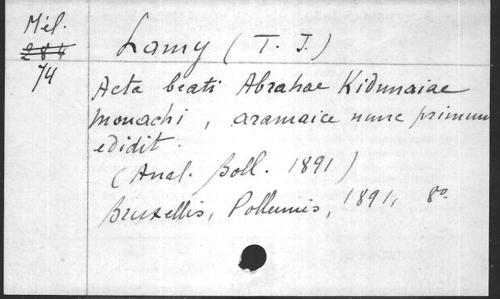 Mél.
284
74
Lamy (T. J.)
Acta beati Abrahae Kidunaiae
monachi, aramaice nunc primum
edidit.
(Anal. Boll. 1891)
Bruxellis, Polleunis, 1891, 8o.